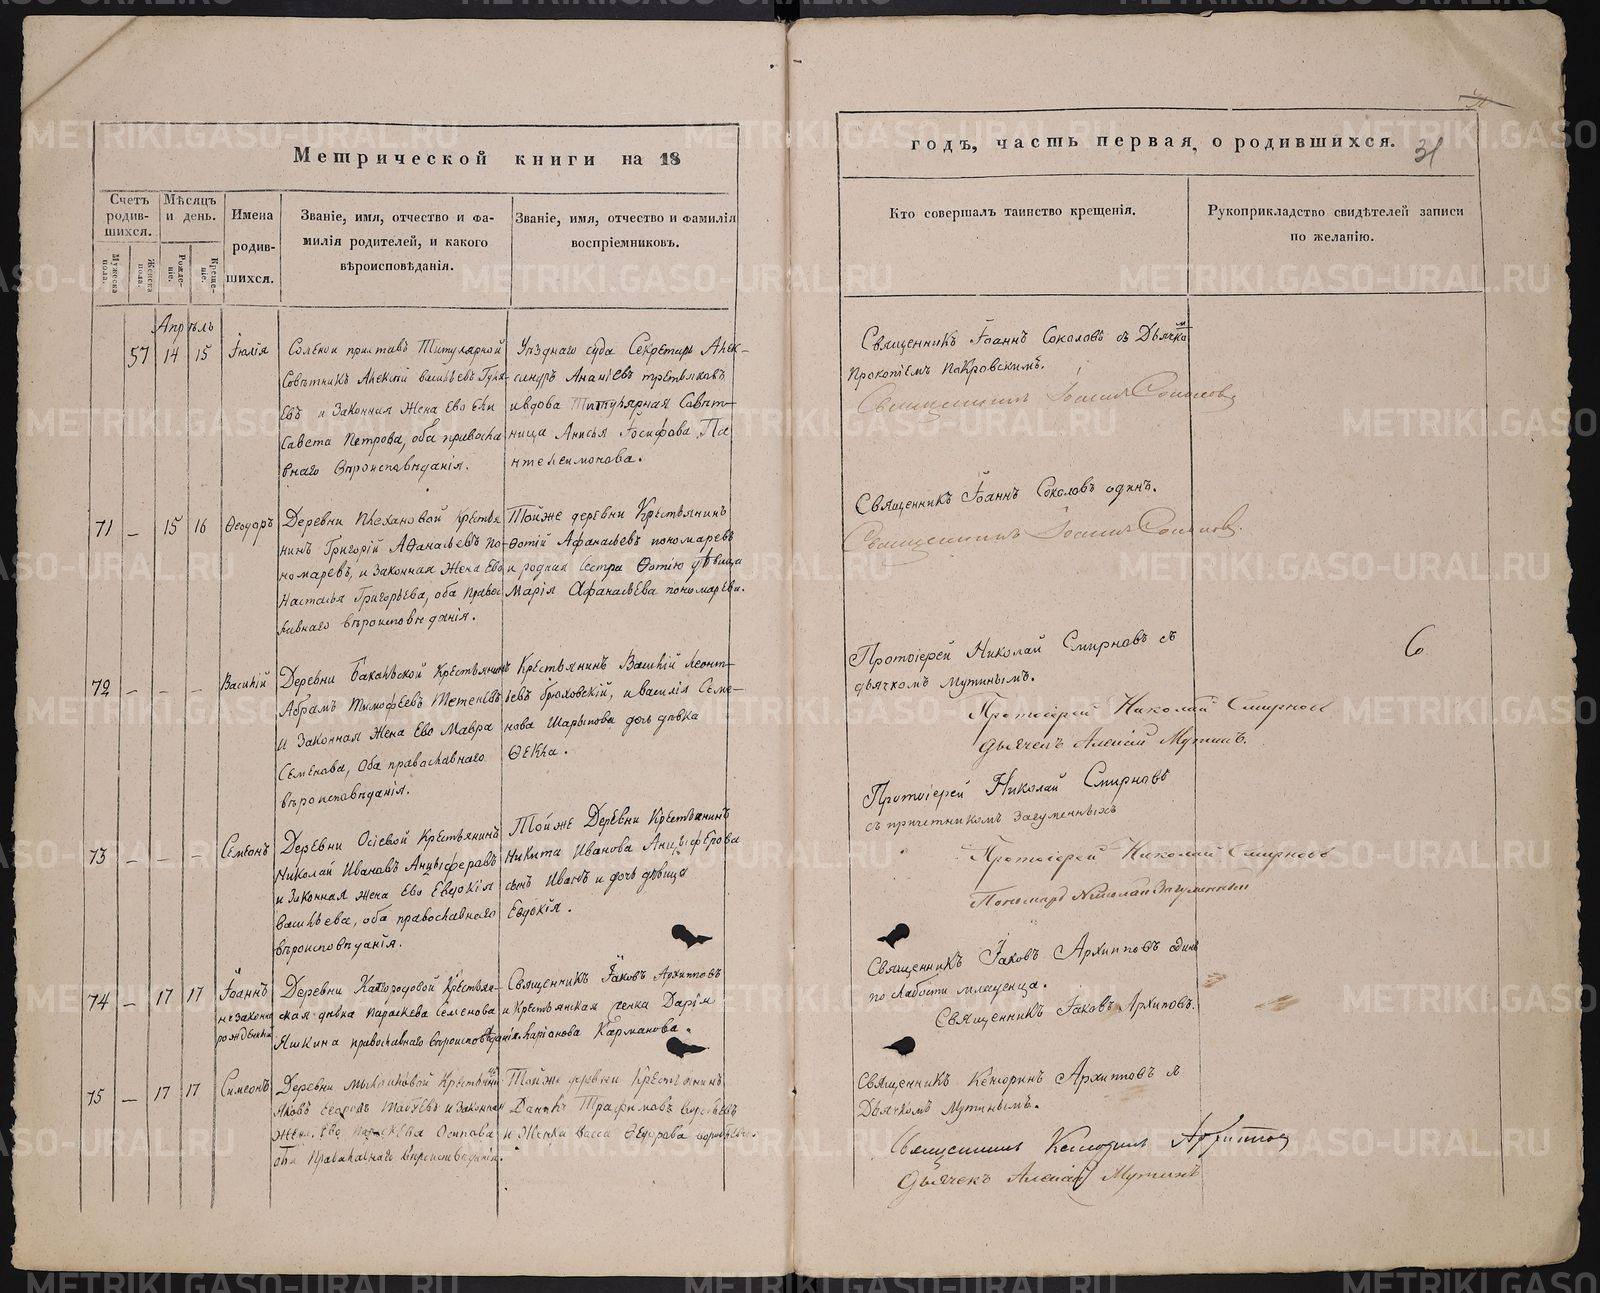 Метрической книги на 18
Счетъ родившихся.
Мѣсяцъ и день.
Мужеска пола.
Женска пола.
Рожденіе.
Крещеніе.
Имена родившихся.
Званіе, имя, отчество и фамилія родителей, и какого вѣроисповѣданія.
Званіе, имя, отчество и фамилія воспріемниковъ.
годъ, часть первая, о родившихся.
31
Кто совершалъ таинство крещенія.
Рукоприкладство свидѣтелей записи по желанію.
Апрѣль
57 14 15 Іюлія
Соленои приставъ Титулярной
Совѣтникъ Алексѣй Васильевъ
и Законная Жена Ево Ели
савета Петрова, оба правосла
внаго Вѣроисповѣданія.
Уѣзднаго суда Секретарь Алек-
сандръ Ананіевъ третьяковъ
и вдова Титулярная Совѣт-
ница Анисья Іосифова Па
нтелеимонова.
Священникъ Іоаннъ Соколовъ съ Дьячко
м
Прокопіемъ Покровскимъ.
Священникъ Іоаннъ Соколовъ
71 – 15 16 Ѳеодоръ
Деревни Плехановой крестья
нинъ Григорій Аѳанасьевъ По-
номаревъ, и Законная Жена Ево
Наталья Григорьева, оба Право
славнаго вѣроисповѣданія.
Тойже деревни Крестьянинъ
Ѳотій Афанасьевъ пономаревъ
и родная Сестра Ѳотію дѣвица
Марія Афанасьева пономарева.
Священникъ Іоаннъ Соколовъ одинъ.
Священникъ Іоаннъ Соколовъ.
72 – – – Василій
Деревни Крестьянинъ
Абрамъ Тимофеевъ Тетеневъ
и Законная Жена Ево Мавра
Семенова, Оба православнаго
вѣроисповѣданія.
Крестьянинъ Василій Леонт-
ьевъ брюховскій, и василія Семе-
нова Шарыпова дочь дѣвка
Ѳекла.
Протоіерей Николай Смирновъ съ
дьячкомъ Мутинымъ.
Протоіерей Николай Смирновъ
дьячекъ Алексій Мутинъ.
6
73 – – – Семеонъ
Деревни Осіевой Крестьянинъ
Николай Ивановъ Анцыферовъ
и Законная жена Ево Евдокія
Васильева, оба православнаго
вѣроисповѣданія.
Тойже Деревни Крестьянинъ
Никита Иванова Анцыферова
сынъ Иванъ и дочь дѣвица
Евдокія.
Протоіерей Николай Смирновъ
съ причетникомъ Загуменныхъ
Протоіерей Николай Смирновъ
Пономарь Николай Загуменный
74 – 17 17 Іоаннъ
незаконно
рожденный
Деревни Крестьян-
ская дѣвка Параскева Семенова
Яшкина православнаго вѣроисповѣданія.
Священникъ Іаковъ Архипповъ
и Крестьянская женка Дарія
Ларіонова Карманова.
Священникъ Іаковъ Архипповъ одинъ
по слабости младенца.
Священникъ Іаковъ Архиповъ.
75 – 17 17 Симеонъ
Деревни Крестьянинъ
Яковъ и Законная
Жена Ево Параскева Осипова
оба Православнаго вѣроисповѣданія.
Тойже деревни Крестьянинъ
Данилъ Трафимовъ воробьевъ
и Женка Васса Ѳедорова
Священникъ Архипповъ
Дьячкомъ Мутинымъ.
Священникъ Архипповъ
дьячекъ Алексій Мутинъ
METRIKI.GASO-URAL.RU